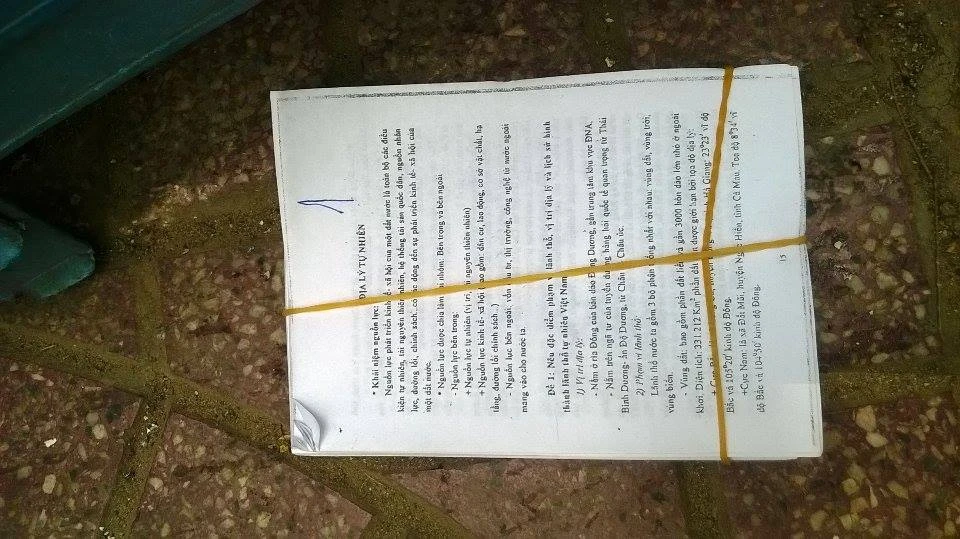 11
ĐỊA LÝ TỰ NHIÊN
* Khái niệm nguồn lực:
Nguồn lực phát triển kinh tế- xã hội của một đất nước là toàn bộ các điều
kiện tự nhiên, tài nguyên thiên nhiên, hệ thống tài sản quốc dân, nguồn nhân
lực, đường lối, chính sách...có tác động đến sự phát triển kinh tế- xã hội của
một đất nước.
* Nguồn lực được chia làm hai nhóm: Bên trong và bên ngoài
- Nguồn lực bên trong:
+ Nguồn lực tự nhiên (vị trí, tài nguyên thiên nhiên)
+ Nguồn lực kinh tế- xã hội bao gồm: dân cư, lao động, cơ sở vật chất, hạ
tầng, đường lối chính sách...)
- Nguồn lực bên ngoài: vốn đầu tư, thị trường, công nghệ từ nước ngoài
mang vào cho nước ta.
Đề 1: Nêu đặc điểm phạm lãnh thổ, vị trí địa lý và lịch sử hình
thành lãnh thổ tự nhiên Việt Nam
1) Vị trí địa lý:
- Nằm ở rìa Đông của bán đảo Đông Dương, gần trung tâm khu vực ĐNA.
- Nằm trên ngã tư của tuyến đường hàng hải quốc tế quan trọng từ Thái
Bình Dương- Ấn Độ Dương, từ Châu Châu úc.
2) Phạm vi lãnh thổ:
Lãnh thổ nước ta gồm 3 bộ phận thống nhất với nhau: vùng đất, vùng trời,
vùng biển.
- Vùng đất, bao gồm phần đất liền và gần 3000 hòn đảo lớn nhỏ ở ngoài
khơi. Diện tích: 331.212 Km² phần đất liền được giới hạn bởi tọa độ địa lý:
+ Cực Hà Giang: 23°23' vĩ độ
Bắc và 105°20' kinh độ Đông.
+Cực Nam: là xã Đất Mũi, huyện Ngọc Hiển, tỉnh Cà Mau. Toạ độ 8°34' vĩ
độ Bắc và 104°50' kinh độ Đông.